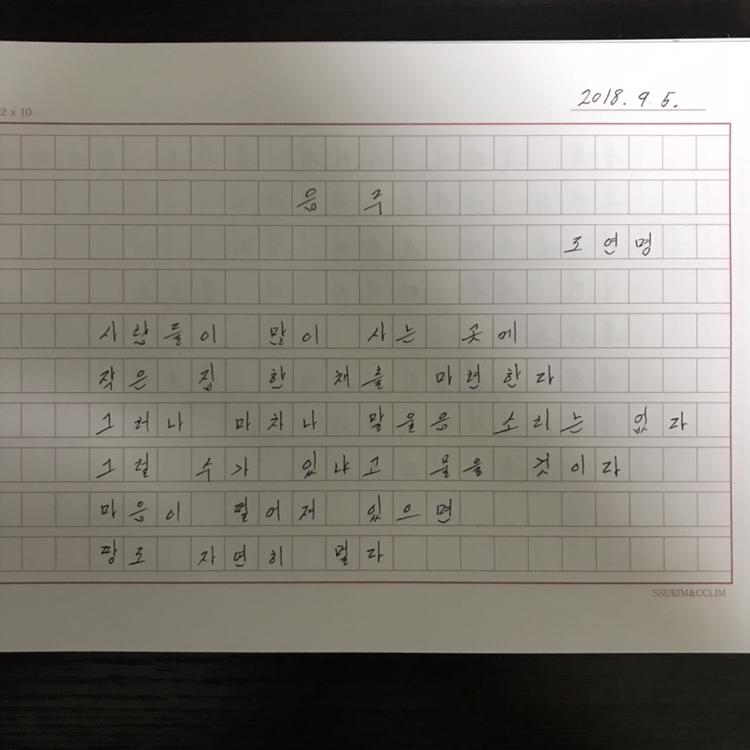 2018. 9. 5.
2 x 10
음 주
도연명
사람들이 많이 사는 곳에
작은 집 한 채를 마련한다
그러나 마차나 말울음 소리는 없다
그럴 수가 있냐고 물을 것이다
마음이 떨어져 있으면
땅도 자연히 멀다
SSUEIM&CCLIM